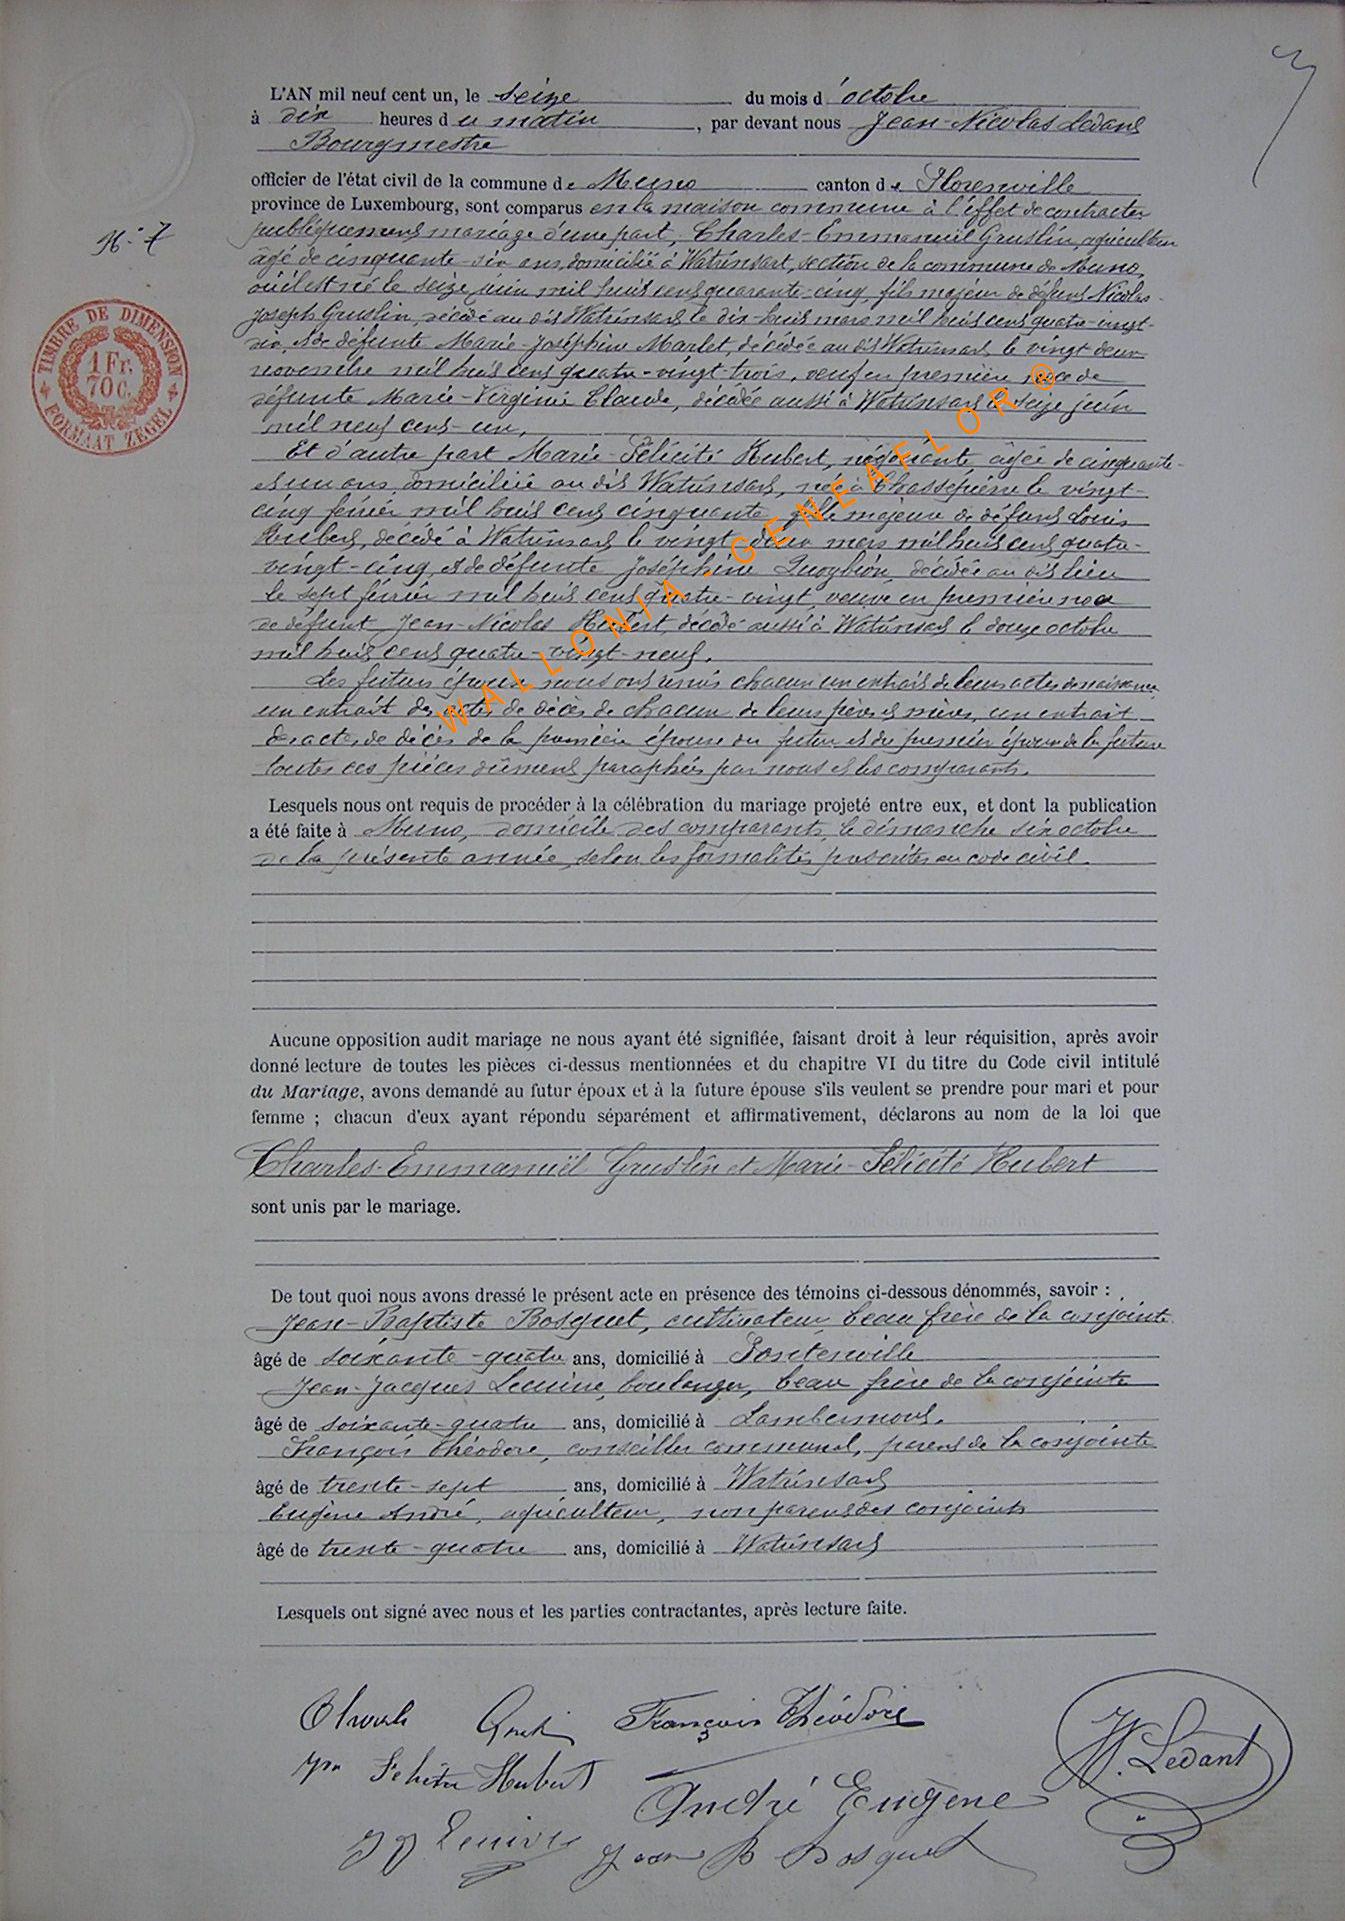 L'AN mil neuf cent un, le seize du mois d'octobre
à dix heures du matin, par devant nous Jean-Nicolas Ledant
Bourgmestre
officier de l'état civil de la commune de Muno canton de Florenville
province de Luxembourg, sont comparus en la maison commune à l'effet de contracter
publiquement mariage d'une part, Charles-Emmanuël Gruslin, agriculteur
âgé de cinquante-six ans, domicilié à Watrinsart, section de la commune de Muno,
où il est né le seize juin mil huit cent quarante-cinq, fils majeur de défunt Nicolas-
Joseph Gruslin, décédé au dit Watrinsart le dix-huit mars mil huit cent quatre-vingt-
six, et de défunte Marie-Joséphine Marlet, décédée au dit Watrinsart le vingt deux
novembre mil huit cent quatre-vingt-trois, veuf en première noce de
défunte Marie-Virginie Claude, décédée aussi à Watrinsart le seize juin
mil neuf cent-un,
Et d'autre part Marie-Félicité Hubert, négociante, âgée de cinquante-
et un ans, domiciliée au dit Watrinsart, née à Chassepierre le vingt-
cinq février mil huit cent cinquante, fille majeure de défunt Louis
Hubert, décédé à Watrinsart le vingt deux mars mil huit cent quatre-
vingt-cinq, et de défunte Joséphine décédée au dit lieu
le sept février mil huit cent quatre-vingt, veuve en première noce
de défunt Jean-Nicolas décédé aussi à Watrinsart le douze octobre
mil huit cent quatre-vingt-neuf.
Les futurs époux nous ont remis chacun un extrait de leurs actes de naissance
un extrait des actes de décès de chacun de leurs pères et mères, un extrait
des actes de décès de la première épouse du futur et du premier époux de la future
toutes ces pièces dûment paraphées par nous et les comparants.
N: 7
TIMBRE DE DIMENSION
1 Fr.
70 C.
FORMAAT ZEGEL
WALLONIA - GENEAFLOR ®
Lesquels nous ont requis de procéder à la célébration du mariage projeté entre eux, et dont la publication
a été faite à Muno, domicile des comparants, le dimanche six octobre
de la présente année, selon les formalités prescrites au code civil.
Aucune opposition audit mariage ne nous ayant été signifiée, faisant droit à leur réquisition, après avoir
donné lecture de toutes les pièces ci-dessus mentionnées et du chapitre VI du titre du Code civil intitulé
du Mariage, avons demandé au futur époux et à la future épouse s'ils veulent se prendre pour mari et pour
femme ; chacun d'eux ayant répondu séparément et affirmativement, déclarons au nom de la loi que
Charles-Emmanuël Gruslin et Marie-Félicité Hubert
sont unis par le mariage.
De tout quoi nous avons dressé le présent acte en présence des témoins ci-dessous dénommés, savoir :
Jean-Baptiste Bosquet, cultivateur, beau frère de la conjointe
âgé de soixante-quatre ans, domicilié à
Jean-Jacques boulanger, beau frère de la conjointe
âgé de soixante-quatre ans, domicilié à Lambermont.
François Théodore, conseiller communal, parent de la conjointe
âgé de trente-sept ans, domicilié à Watrinsart
Eugène André, agriculteur, non parent des conjoints
âgé de trente-quatre ans, domicilié à Watrinsart
Lesquels ont signé avec nous et les parties contractantes, après lecture faite.
François Théodore
Hubert
N. Ledant
André Eugène
Jean B Bosquet